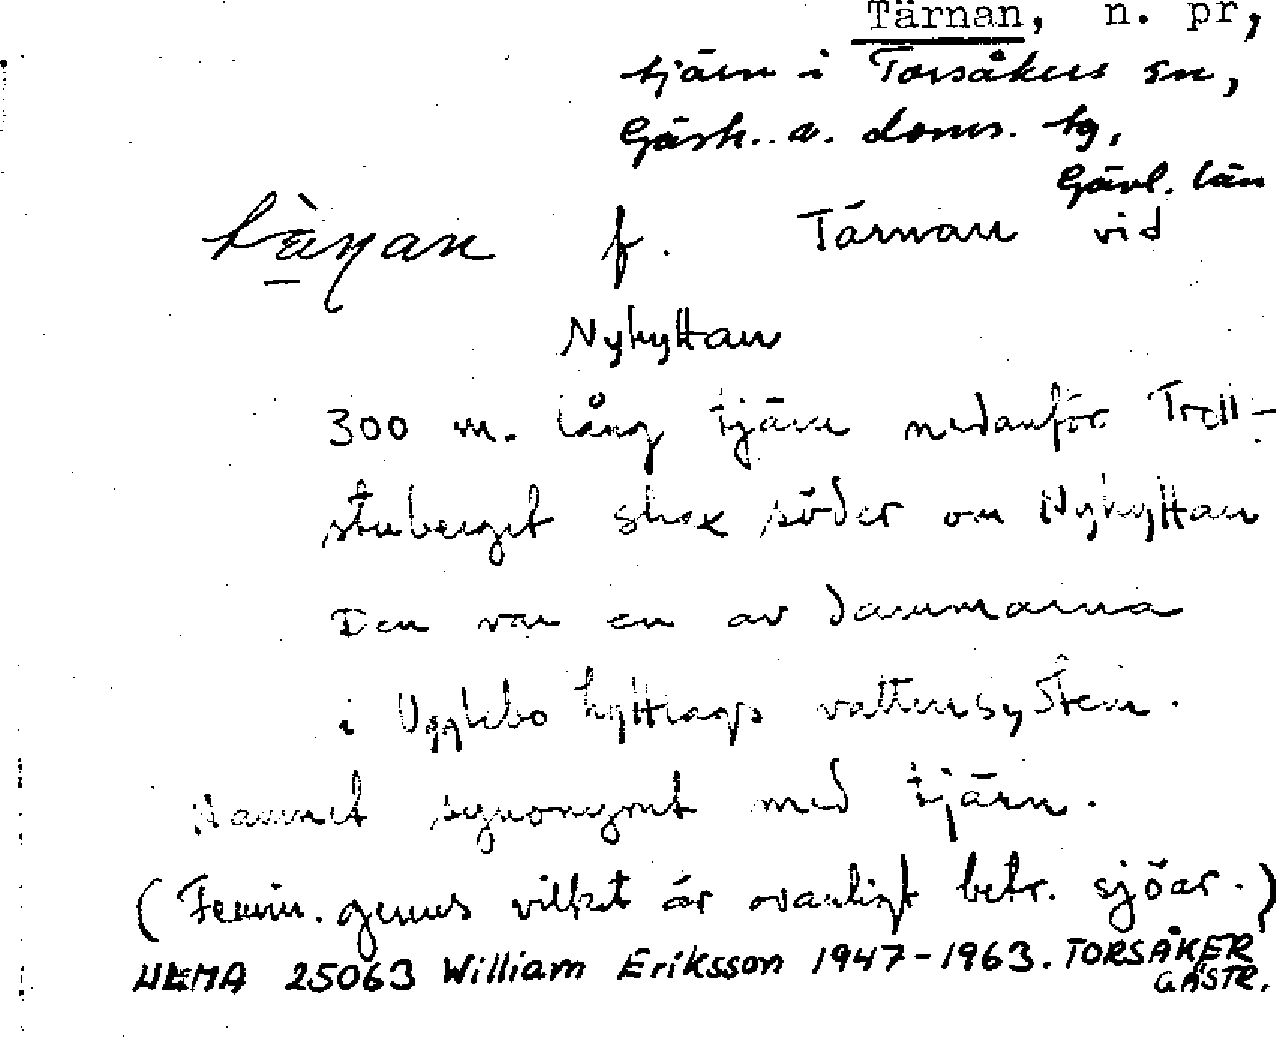 Tärnan, n. pr,
tjärn i Torsåkers sn,
Gästr. ö. doms. hg,
Gävl. län
f. Tärnan vid
Nyhyttan
300 m. lång tjärn nedanför Troll-
stuberget strax söder om Nyhyttan
Den var en av dammarna
i Ugglebo hyttlags vattensystem.
Namnet synonymt med tjärn.
(Femin. genus vilket är ovanligt betr. sjöar.)
25063 William Eriksson 1947-1963. TORSÅKER
GÄSTR.